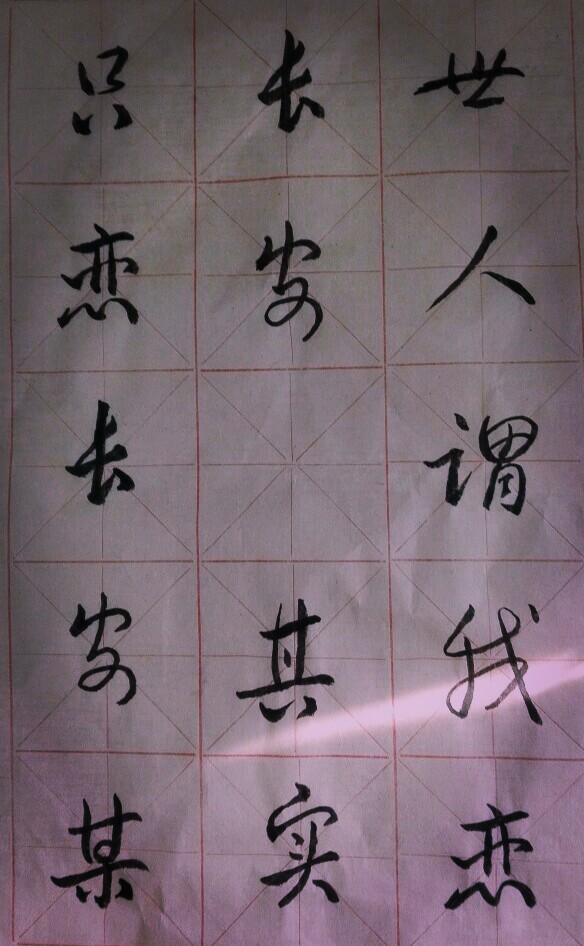 世人谓我恋
长安 其实
只恋长安某